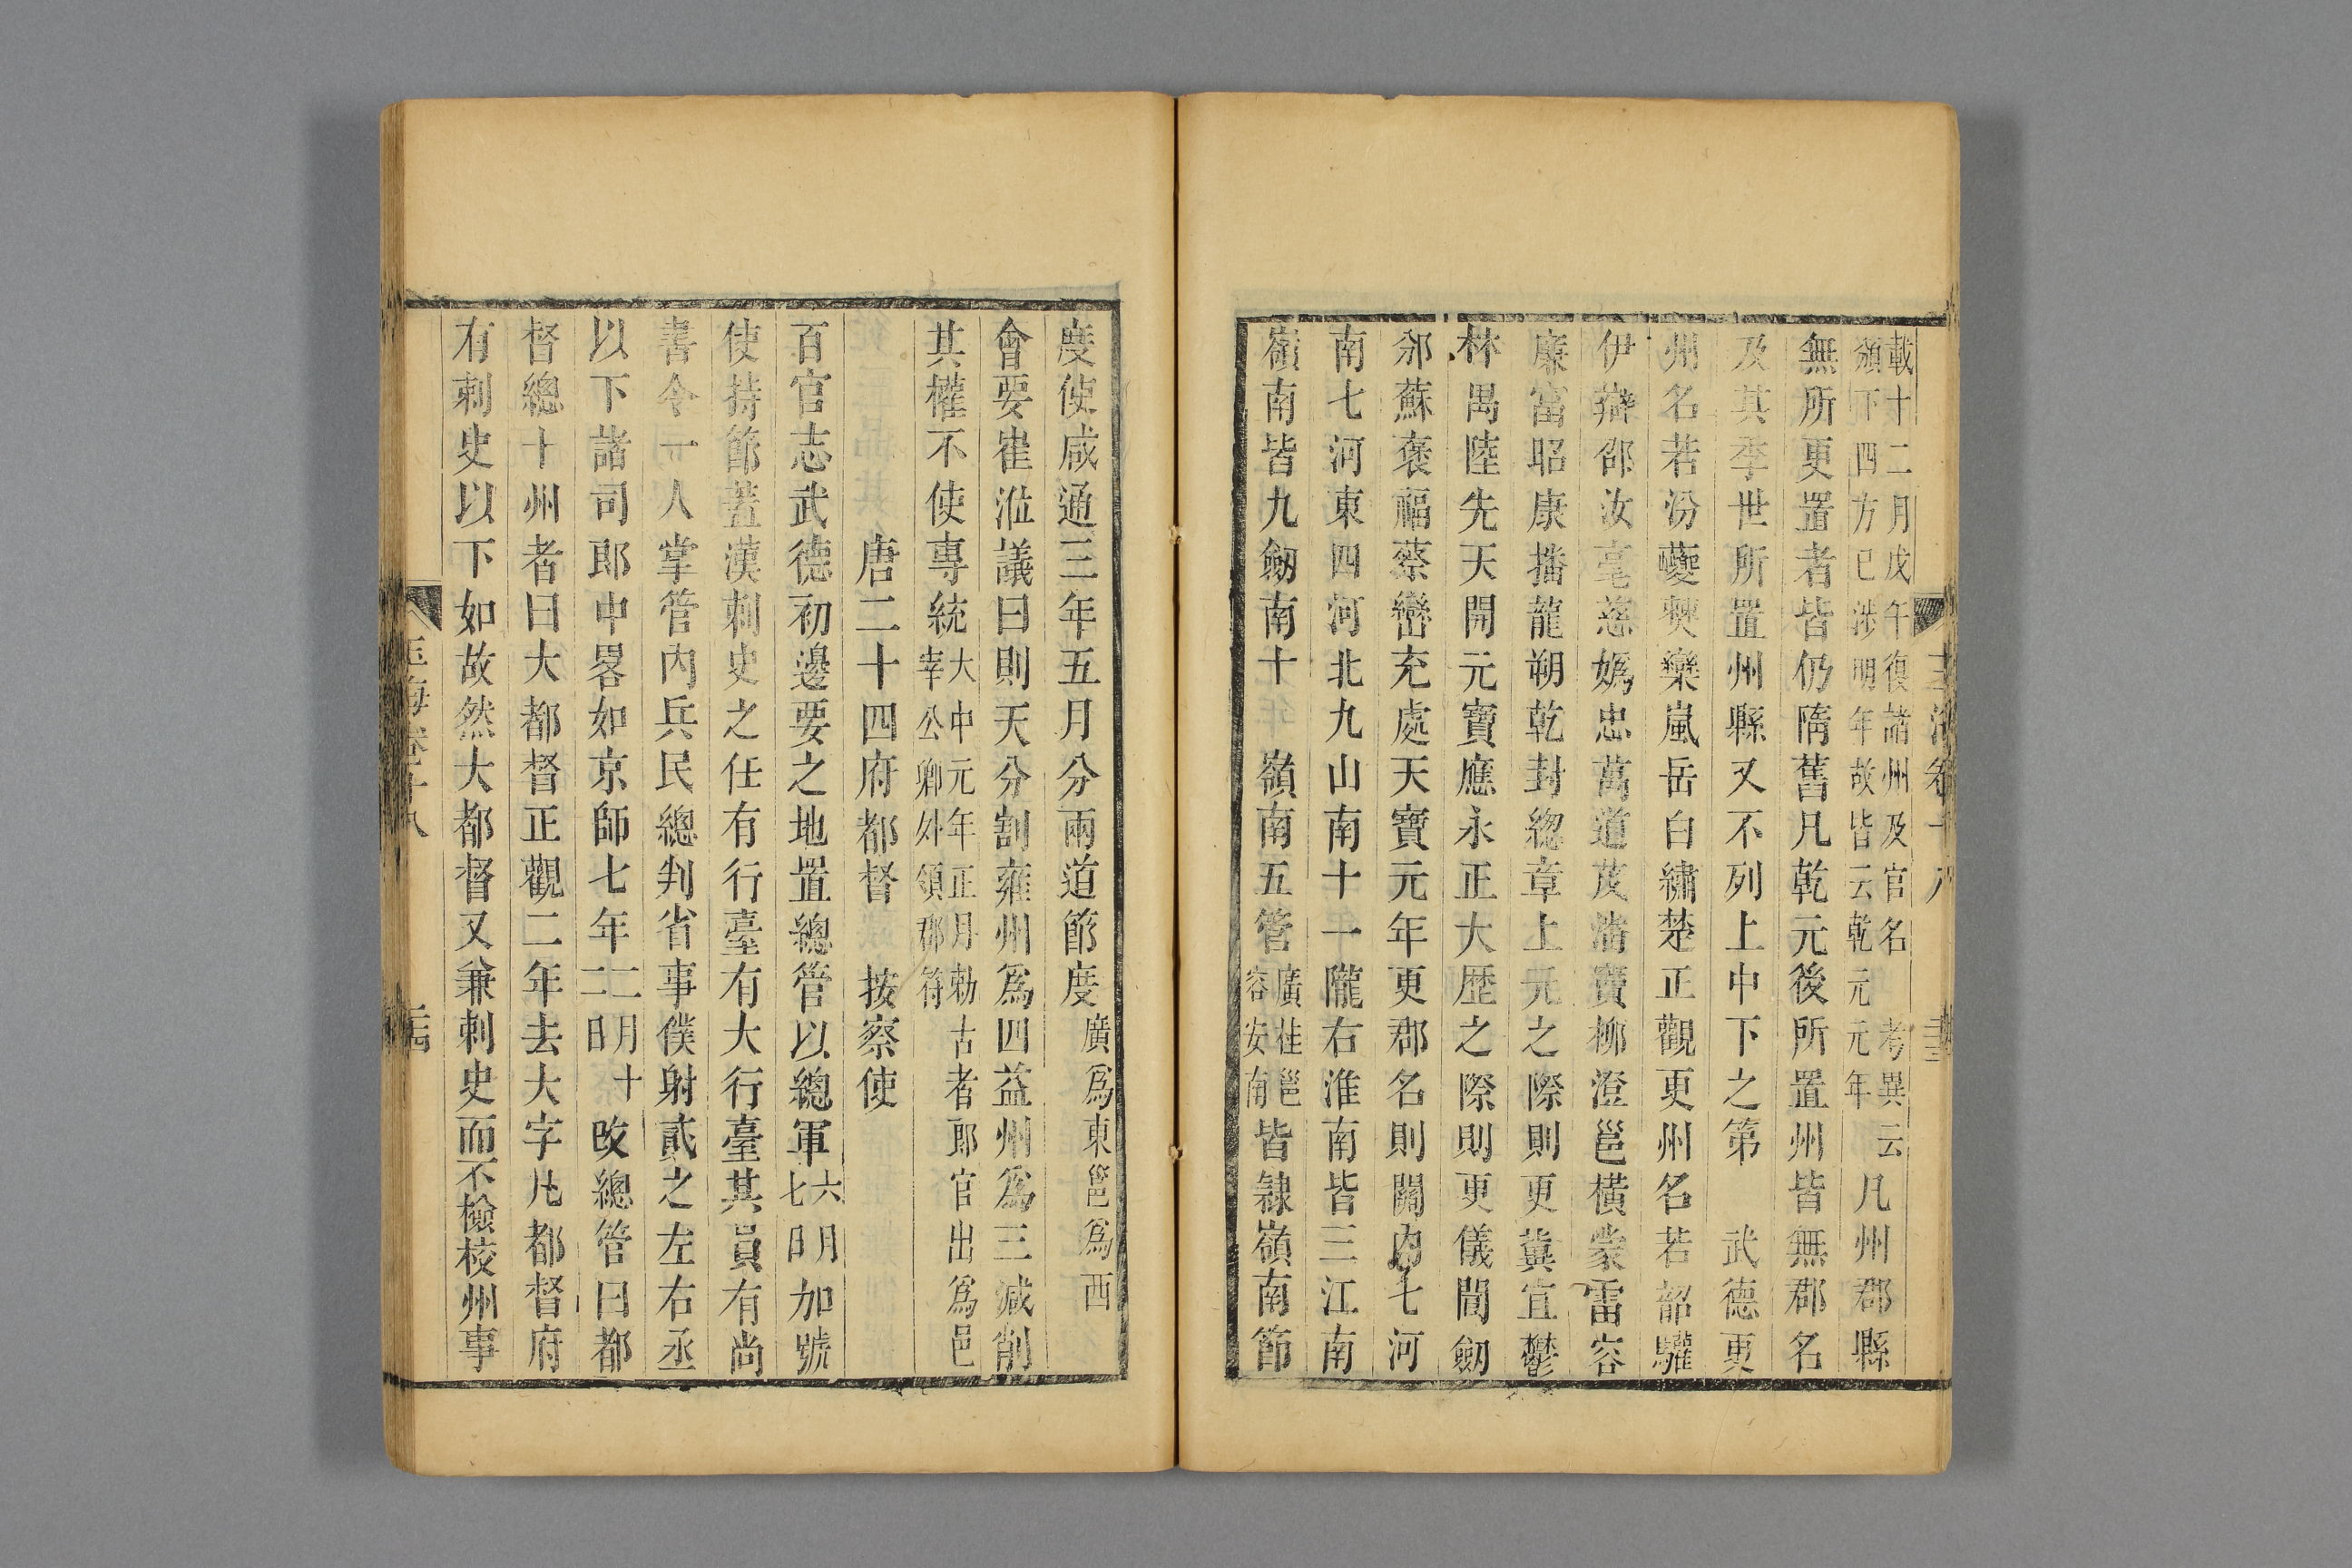 載十二月戊午復諸州及官名 考異云
頒下四方已涉明年故皆云乾元元年
凡州郡縣
無所更置者皆仍隋舊凡乾元後所置州皆無郡名
及其季世所置州縣又不列上中下之第 武德更
州名若汾夔爕欒嵐岳白繡楚正觀更州名若韶驩
伊辯邵汝亳慈嬀忠萬道茂潘賓柳澄邕橫蒙雷容
廉富昭康播龍朔乾封總章上元之際則更冀宜鬱
林禺陸先天開元寶應永正大歴之際則更儀閬劒
邠蘇褒福蔡巒充處天寶元年更郡名則關內七河
南七河東四河北九山南十一隴右淮南皆三江南
嶺南皆九劒南十 嶺南五管
廣桂邕
容安南
皆隸嶺南節
度使咸通三年五月分兩道節度
廣爲東邕爲西
會要崔涖議曰則天分割雍州爲四益州爲三減削
其權不使專統
大中元年正月勅古者郎官出爲邑
宰公卿外領郡符
唐二十四府都督 按察使
百官志武德初邊要之地置總管以總軍
六月
七日
加號
使持節蓋漢刺史之任有行臺有大行臺其員有尚
書令一人掌管內兵民總判省事僕射貳之左右丞
以下諸司郎中畧如京師七年
二月十
二日
改總管曰都
督總十州者曰大都督正觀二年去大字凡都督府
有刺史以下如故然大都督又兼刺史而不檢校州事
玉海卷十八